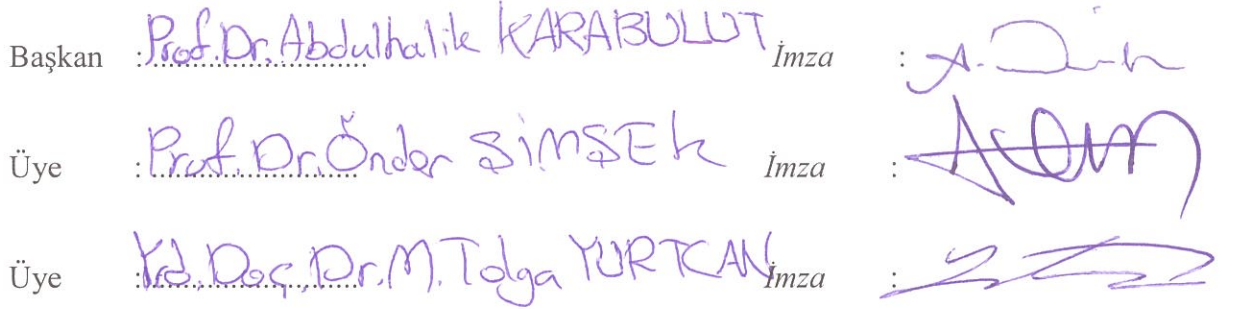 Başkan : Prof. Dr. Abdulhalik KARABULUT İmza :
Üye : Prof. Dr. Önder ŞİMŞEK İmza :
Üye : Yrd. Doç. Dr. M. Tolga YURTCAN İmza :